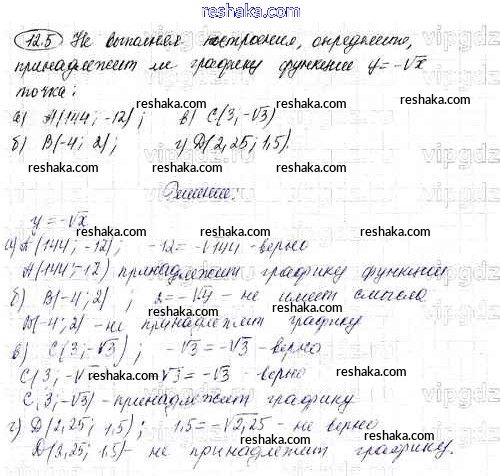 reshaka.com
12.5 Не выполняя построения, определите,
принадлежит ли графику функции y=-√x
точка:
reshaka.com reshaka.com
а) A(144; -12); в) C(3; -√3)
б) B(-4; 2); г) D(2,25; 1,5).
reshaka.com reshaka.com
Решение:
reshaka.com
y=-√x
а) A(144; -12); -12=-√144 - верно
A(144; -12) принадлежит графику функции
reshaka.com reshaka.com
б) B(-4; 2); 2=-√-4 - не имеет смысла
B(-4; 2) - не принадлежит графику
reshaka.com reshaka.com
в) C(3; -√3); -√3=-√3 - верно
C(3; -√3 -√3=-√3 - верно
reshaka.com reshaka.com
C(3; -√3) - принадлежит графику
г) D(2,25; 1,5); 1,5=-√2,25 - не верно
D(2,25; 1,5) - не принадлежит графику.
reshaka.com reshaka.com